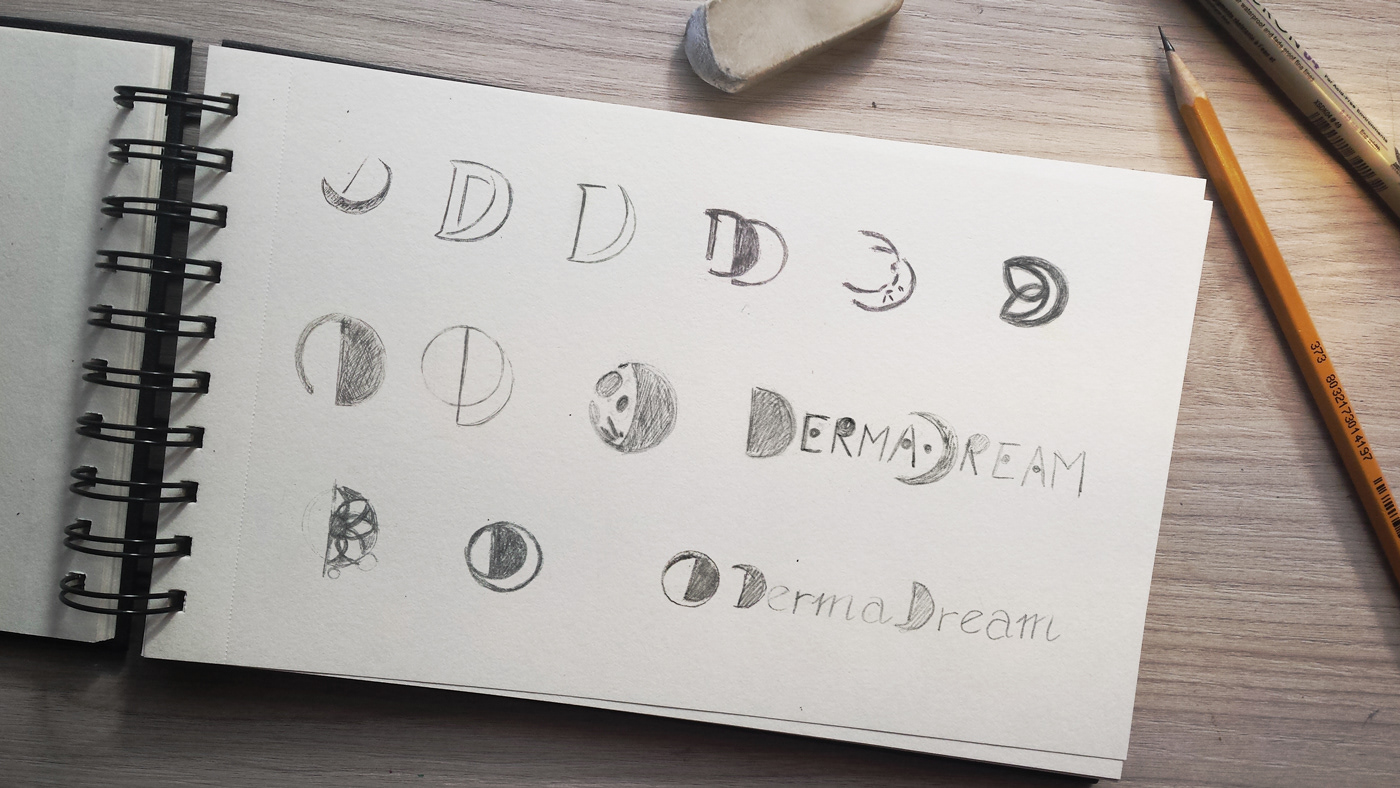 D D DD
DERMADREAM
DermaDream
373 8032173014197